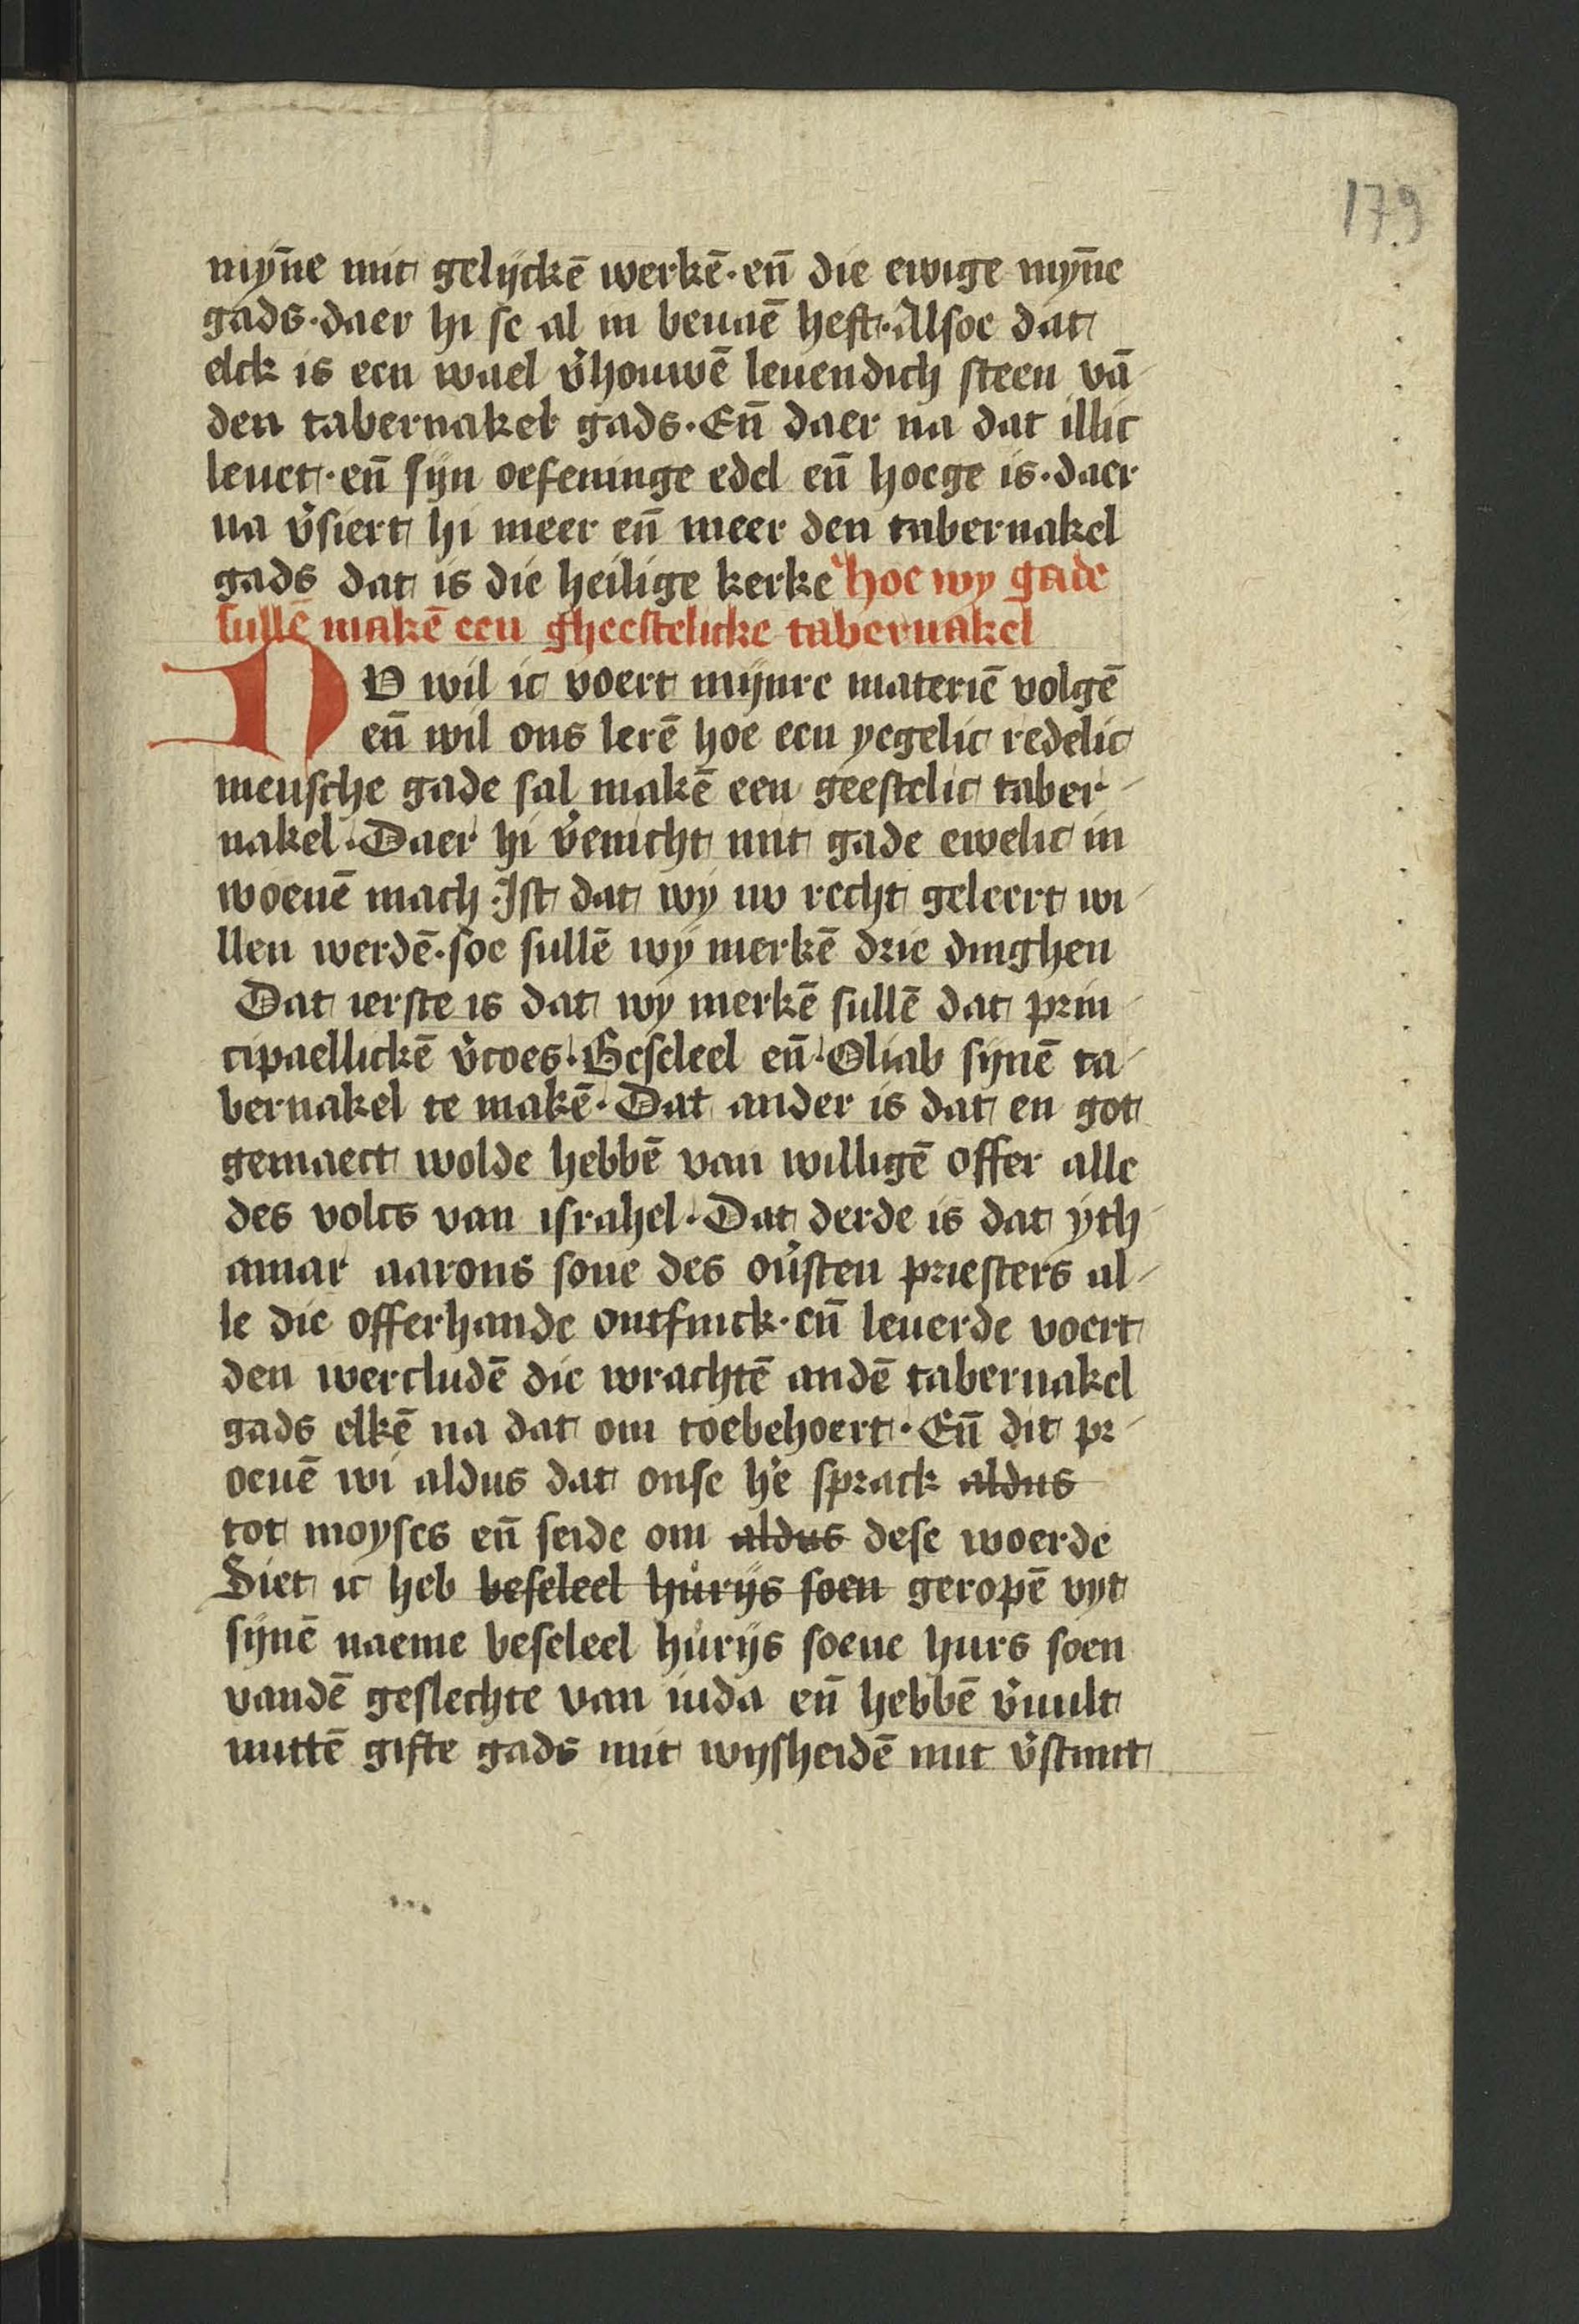 179
myn̄e mit gelijckē werkē·en̄ die ewige myn̄e
gads·daer hi se al in beuaē heft·Alsoe dat
elck is een wael v̉houwē leuendich steen vā
den tabernakel gads·En̄ daer na dat illic
leuet·en̄ sijn oefeninge edel en̄ hoege is·daer
na v̉siert hi meer en̄ meer den tabernakel
gads dat is die heilige kerke hoe wy gade
sullē makē een gheestelicke tabernakel
NV wil ic voert mijnre materiē volgē
en̄ wil ons lerē hoe een yegelic redelic
mensche gade sal makē een geestelic taber-
nakel·Daer hi v̉enicht mit gade ewelic in
woenē mach·Ist dat wy nv recht geleert wi-
llen werdē·soe sullē wy merkē drie dinghen
Dat ierste is dat wy merkē sullē dat prin-
cipaellickē v̉coes·Beseleel en̄·Oliab synē ta-
bernakel te makē·Dat ander is dat en got
gemaect wolde hebbē van willigē offer alle
des volcs van israhel·Dat derde is dat yth-
amar aarons sone des ou̓sten priesters al-
le die offerhande ontfinck·en̄ leuerde voert
den wercludē die wrachtē andē tabernakel
gads elkē na dat om toebehoert·En̄ dit pr-
oeuē wi aldus dat onse he̓ sprack aldus
tot moyses en̄ seide om aldus dese woerde
Siet ic heb beseleel hu̓rijs soen geropē vyt
sijnē naeme beseleel hu̓rijs soene hurs soen
vandē geslechte van iuda en̄ hebbē v̉uult
mittē gifte gads mit wysheidē mit v̉stmit